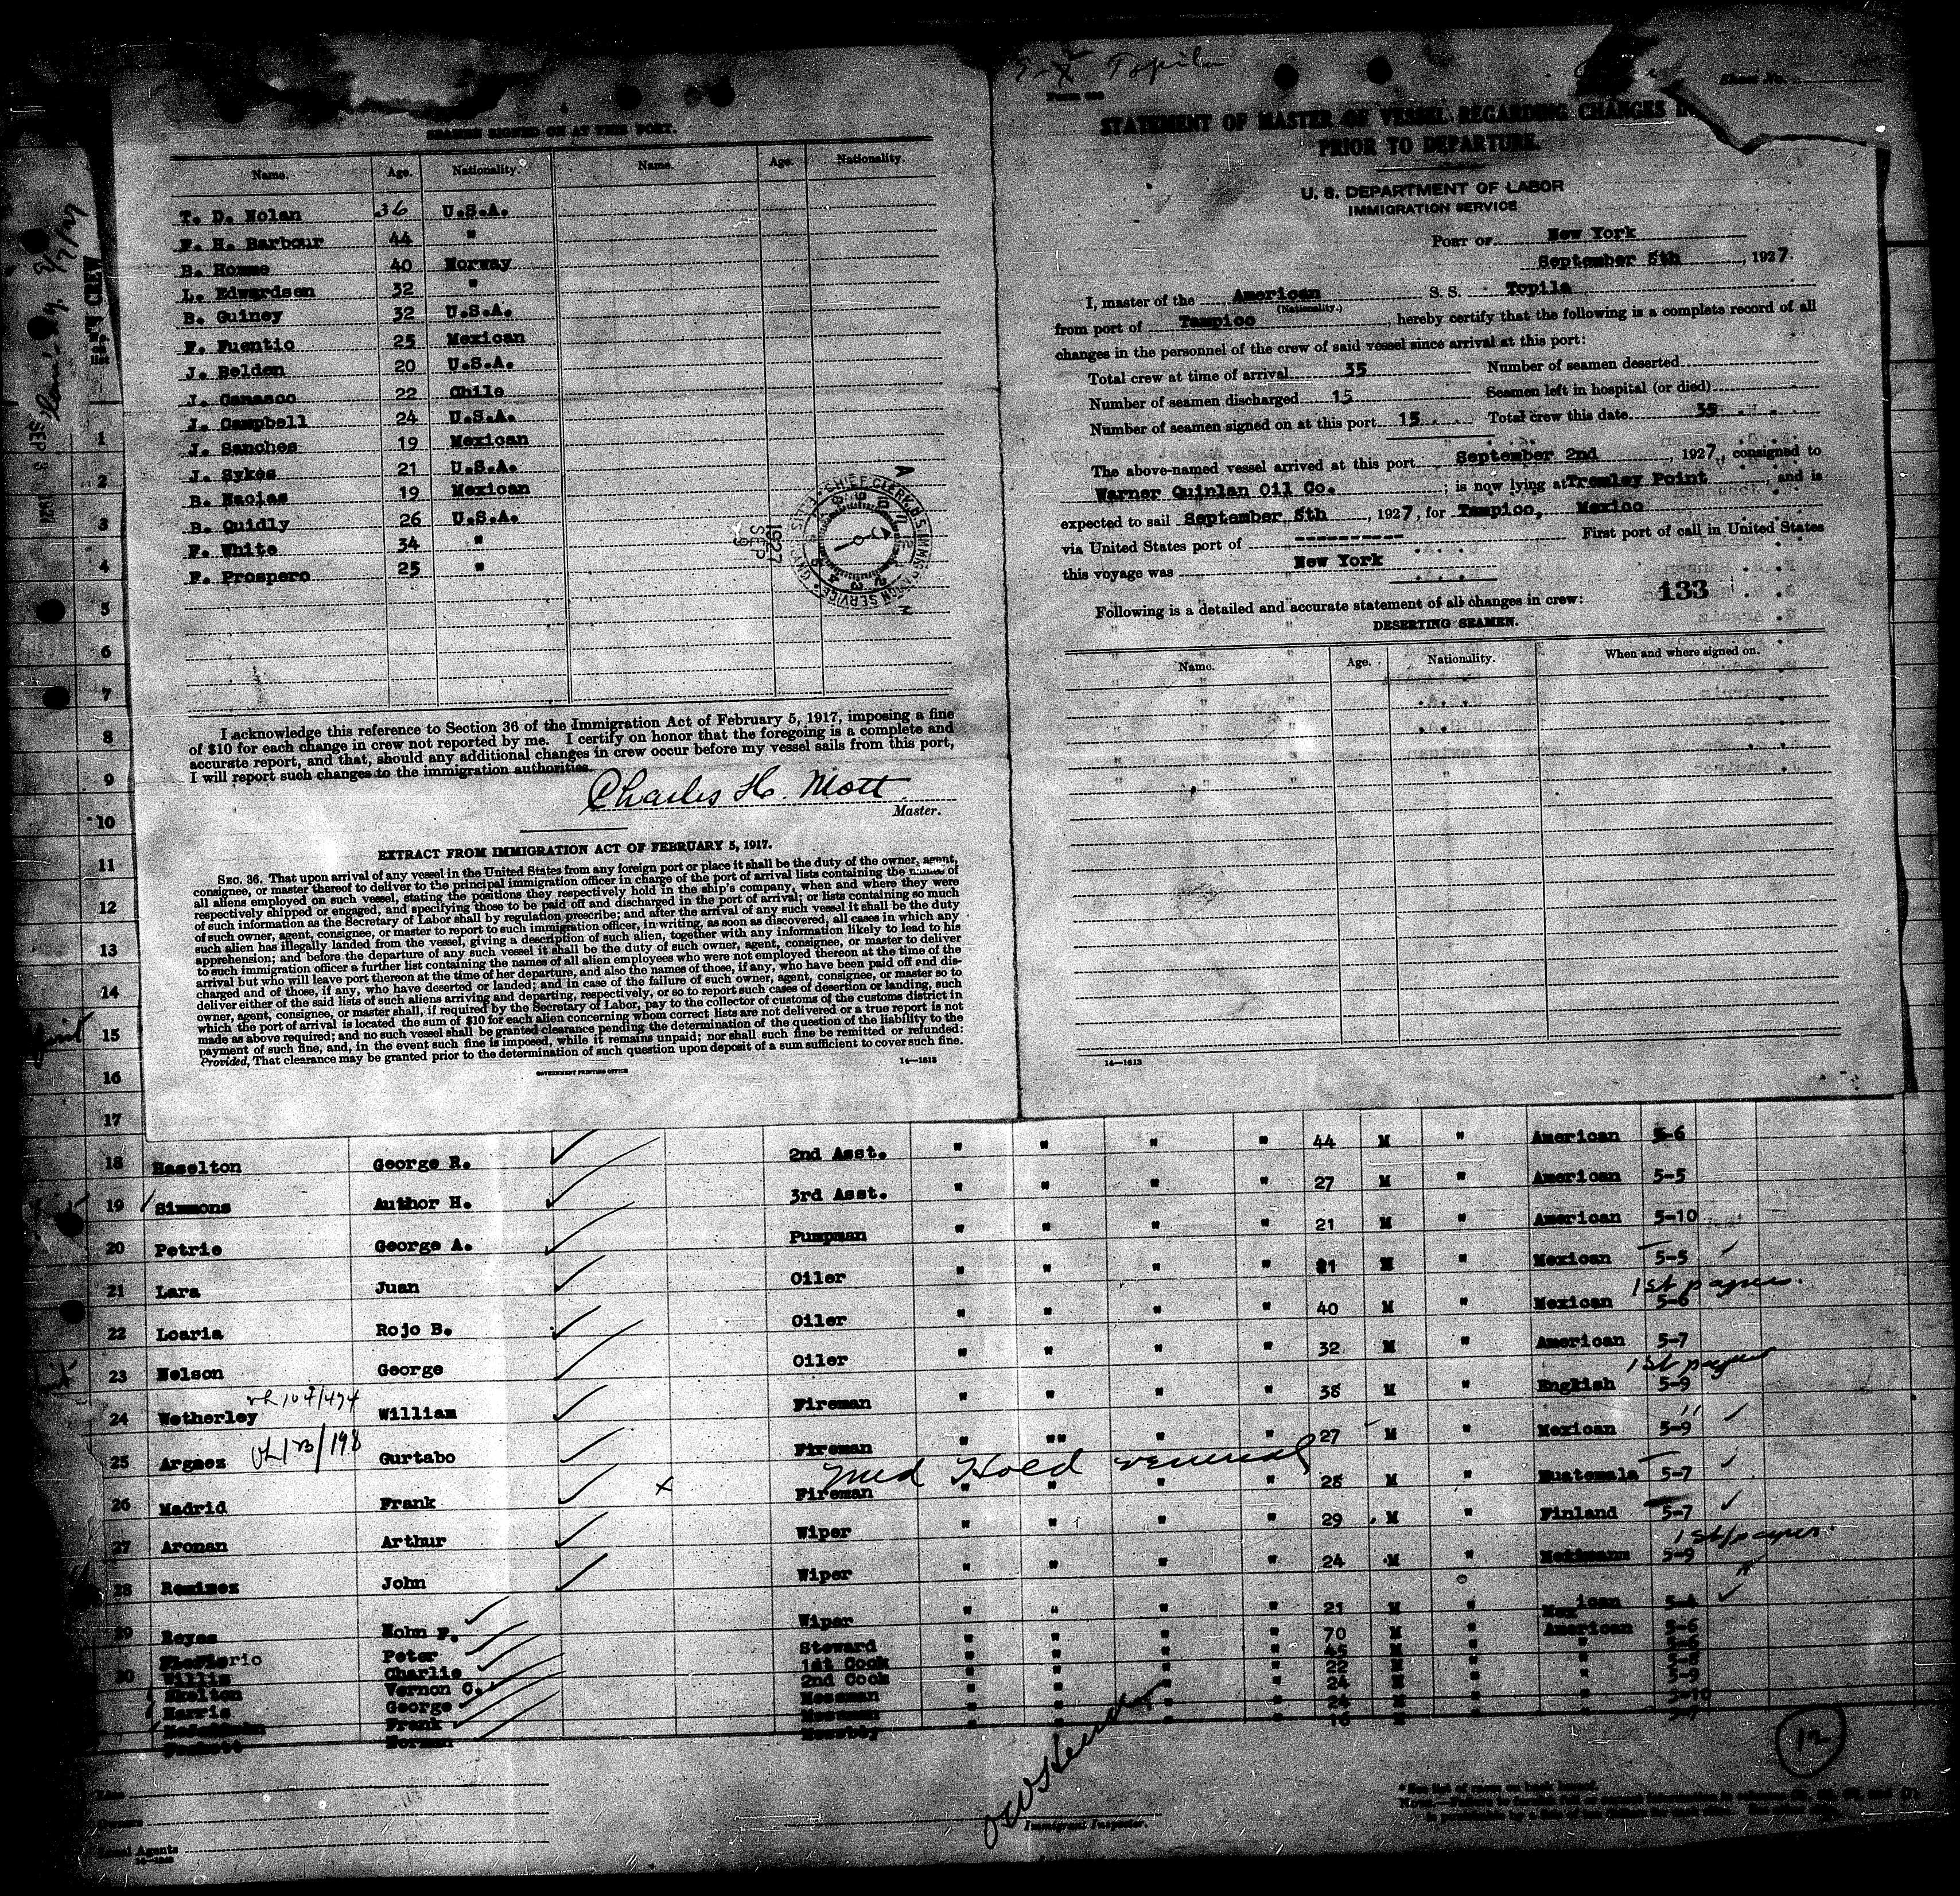 SEAMEN SIGNED ON AT THIS PORT.
Name. Age. Nationality. Name. Age. Nationality.
T. D. Nolan 36 U.S.A.
F. H. Barbour 44 "
B. Homme 40 Norway
L. Edwardsen 32 "
B. Guiney 32 U.S.A.
F. Fuentio 25 Mexican
J. Belden 20 U.S.A.
J. Canasco 22 Chile
J. Campbell 24 U.S.A.
J. Sanches 19 Mexican
J. Sykes 21 U.S.A.
B. Macias 19 Mexican
B. Quidly 26 U.S.A.
F. White 34 "
F. Prospero 25 "
I acknowledge this reference to Section 36 of the Immigration Act of February 5, 1917, imposing a fine
of $10 for each change in crew not reported by me. I certify on honor that the foregoing is a complete and
accurate report, and that, should any additional changes in crew occur before my vessel sails from this port,
I will report such changes to the immigration authorities.
Charles H. Mott
Master.
EXTRACT FROM IMMIGRATION ACT OF FEBRUARY 5, 1917.
SEC. 36. That upon arrival of any vessel in the United States from any foreign port or place it shall be the duty of the owner, agent,
consignee, or master thereof to deliver to the principal immigration officer in charge of the port of arrival lists containing the names of
all aliens employed on such vessel, stating the positions they respectively hold in the ship's company, when and where they were
respectively shipped or engaged, and specifying those to be paid off and discharged in the port of arrival; or lists containing so much
of such information as the Secretary of Labor shall by regulation prescribe; and after the arrival of any such vessel it shall be the duty
of such owner, agent, consignee, or master to report to such immigration officer, in writing, as soon as discovered, all cases in which any
such alien has illegally landed from the vessel, giving a description of such alien, together with any information likely to lead to his
apprehension; and before the departure of any such vessel it shall be the duty of such owner, agent, consignee, or master to deliver
to such immigration officer a further list containing the names of all alien employees who were not employed thereon at the time of the
arrival but who will leave port thereon at the time of her departure, and also the names of those, if any, who have been paid off and dis-
charged and of those, if any, who have deserted or landed; and in case of the failure of such owner, agent, consignee, or master so to
deliver either of the said lists of such aliens arriving and departing, respectively, or so to report such cases of desertion or landing, such
owner, agent, consignee, or master shall, if required by the Secretary of Labor, pay to the collector of customs of the customs district in
which the port of arrival is located the sum of $10 for each alien concerning whom correct lists are not delivered or a true report is not
made as above required; and no such vessel shall be granted clearance pending the determination of the question of the liability to the
payment of such fine, and, in the event such fine is imposed, while it remains unpaid; nor shall such fine be remitted or refunded:
Provided, That clearance may be granted prior to the determination of such question upon deposit of a sum sufficient to cover such fine.
14—1613
GOVERNMENT PRINTING OFFICE
Topila
Sheet No.
STATEMENT OF MASTER OF VESSEL REGARDING CHANGES IN
PRIOR TO DEPARTURE.
U. S. DEPARTMENT OF LABOR
IMMIGRATION SERVICE
PORT OF New York
September 5th, 1927.
I, master of the American S. S. Topila
(Nationality.)
from port of Tampico, hereby certify that the following is a complete record of all
changes in the personnel of the crew of said vessel since arrival at this port:
Total crew at time of arrival 35 Number of seamen deserted
Number of seamen discharged 15 Seamen left in hospital (or died)
Number of seamen signed on at this port 15 Total crew this date 35
The above-named vessel arrived at this port September 2nd, 1927, consigned to
Warner Quinlan Oil Co.; is now lying at Tremley Point, and is
expected to sail September 5th, 1927, for Tampico, Mexico
via United States port of ---------- First port of call in United States
this voyage was New York
133
Following is a detailed and accurate statement of all changes in crew:
DESERTING SEAMEN.
Name. Age. Nationality. When and where signed on.
14—1613
1
2
3
4
5
6
7
8
9
10
11
12
13
14
15
16
17
18 Haselton George R. 2nd Asst. " " " " 44 M " American 5-6
19 Simmons Author H. 3rd Asst. " " " " 27 M " American 5-5
20 Petrie George A. Pumpman " " " " 21 M " American 5-10
21 Lara Juan Oiler " " " " 21 M " Mexican 5-5
1st papers.
22 Loaria Rojo B. Oiler " " " " 40 M " Mexican 5-6
23 Nelson George Oiler " " " " 32 M " American 5-7
1st papers
24 Wetherley William Fireman " " " " 38 M " English 5-9
25 Argaez Gurtabo Fireman " " " " 27 M " Mexican 5-9
Med Hold venereal
26 Madrid Frank Fireman " " " " 28 M " Guatemala 5-7
27 Aronan Arthur Wiper " " " " 29 M " Finland 5-7
1st papers.
28 Remines John Wiper " " " " 24 M " 5-9
29 Reyes Wiper " " " " 21 M " Mexican 5-4
Peter Steward " " " " 70 M " American 5-6
30 Willis Charlie 1st Cook " " " " 45 M " "
Skelton Vernon C. 2nd Cook " " " " 22 M " "
Harris George Messman " " " " 24 M " " 5-9
Frank Messman " " " " 24 M " "
Norman Messboy " " " " 16 M " "
12
Owners
Local Agents
Immigrant Inspector.